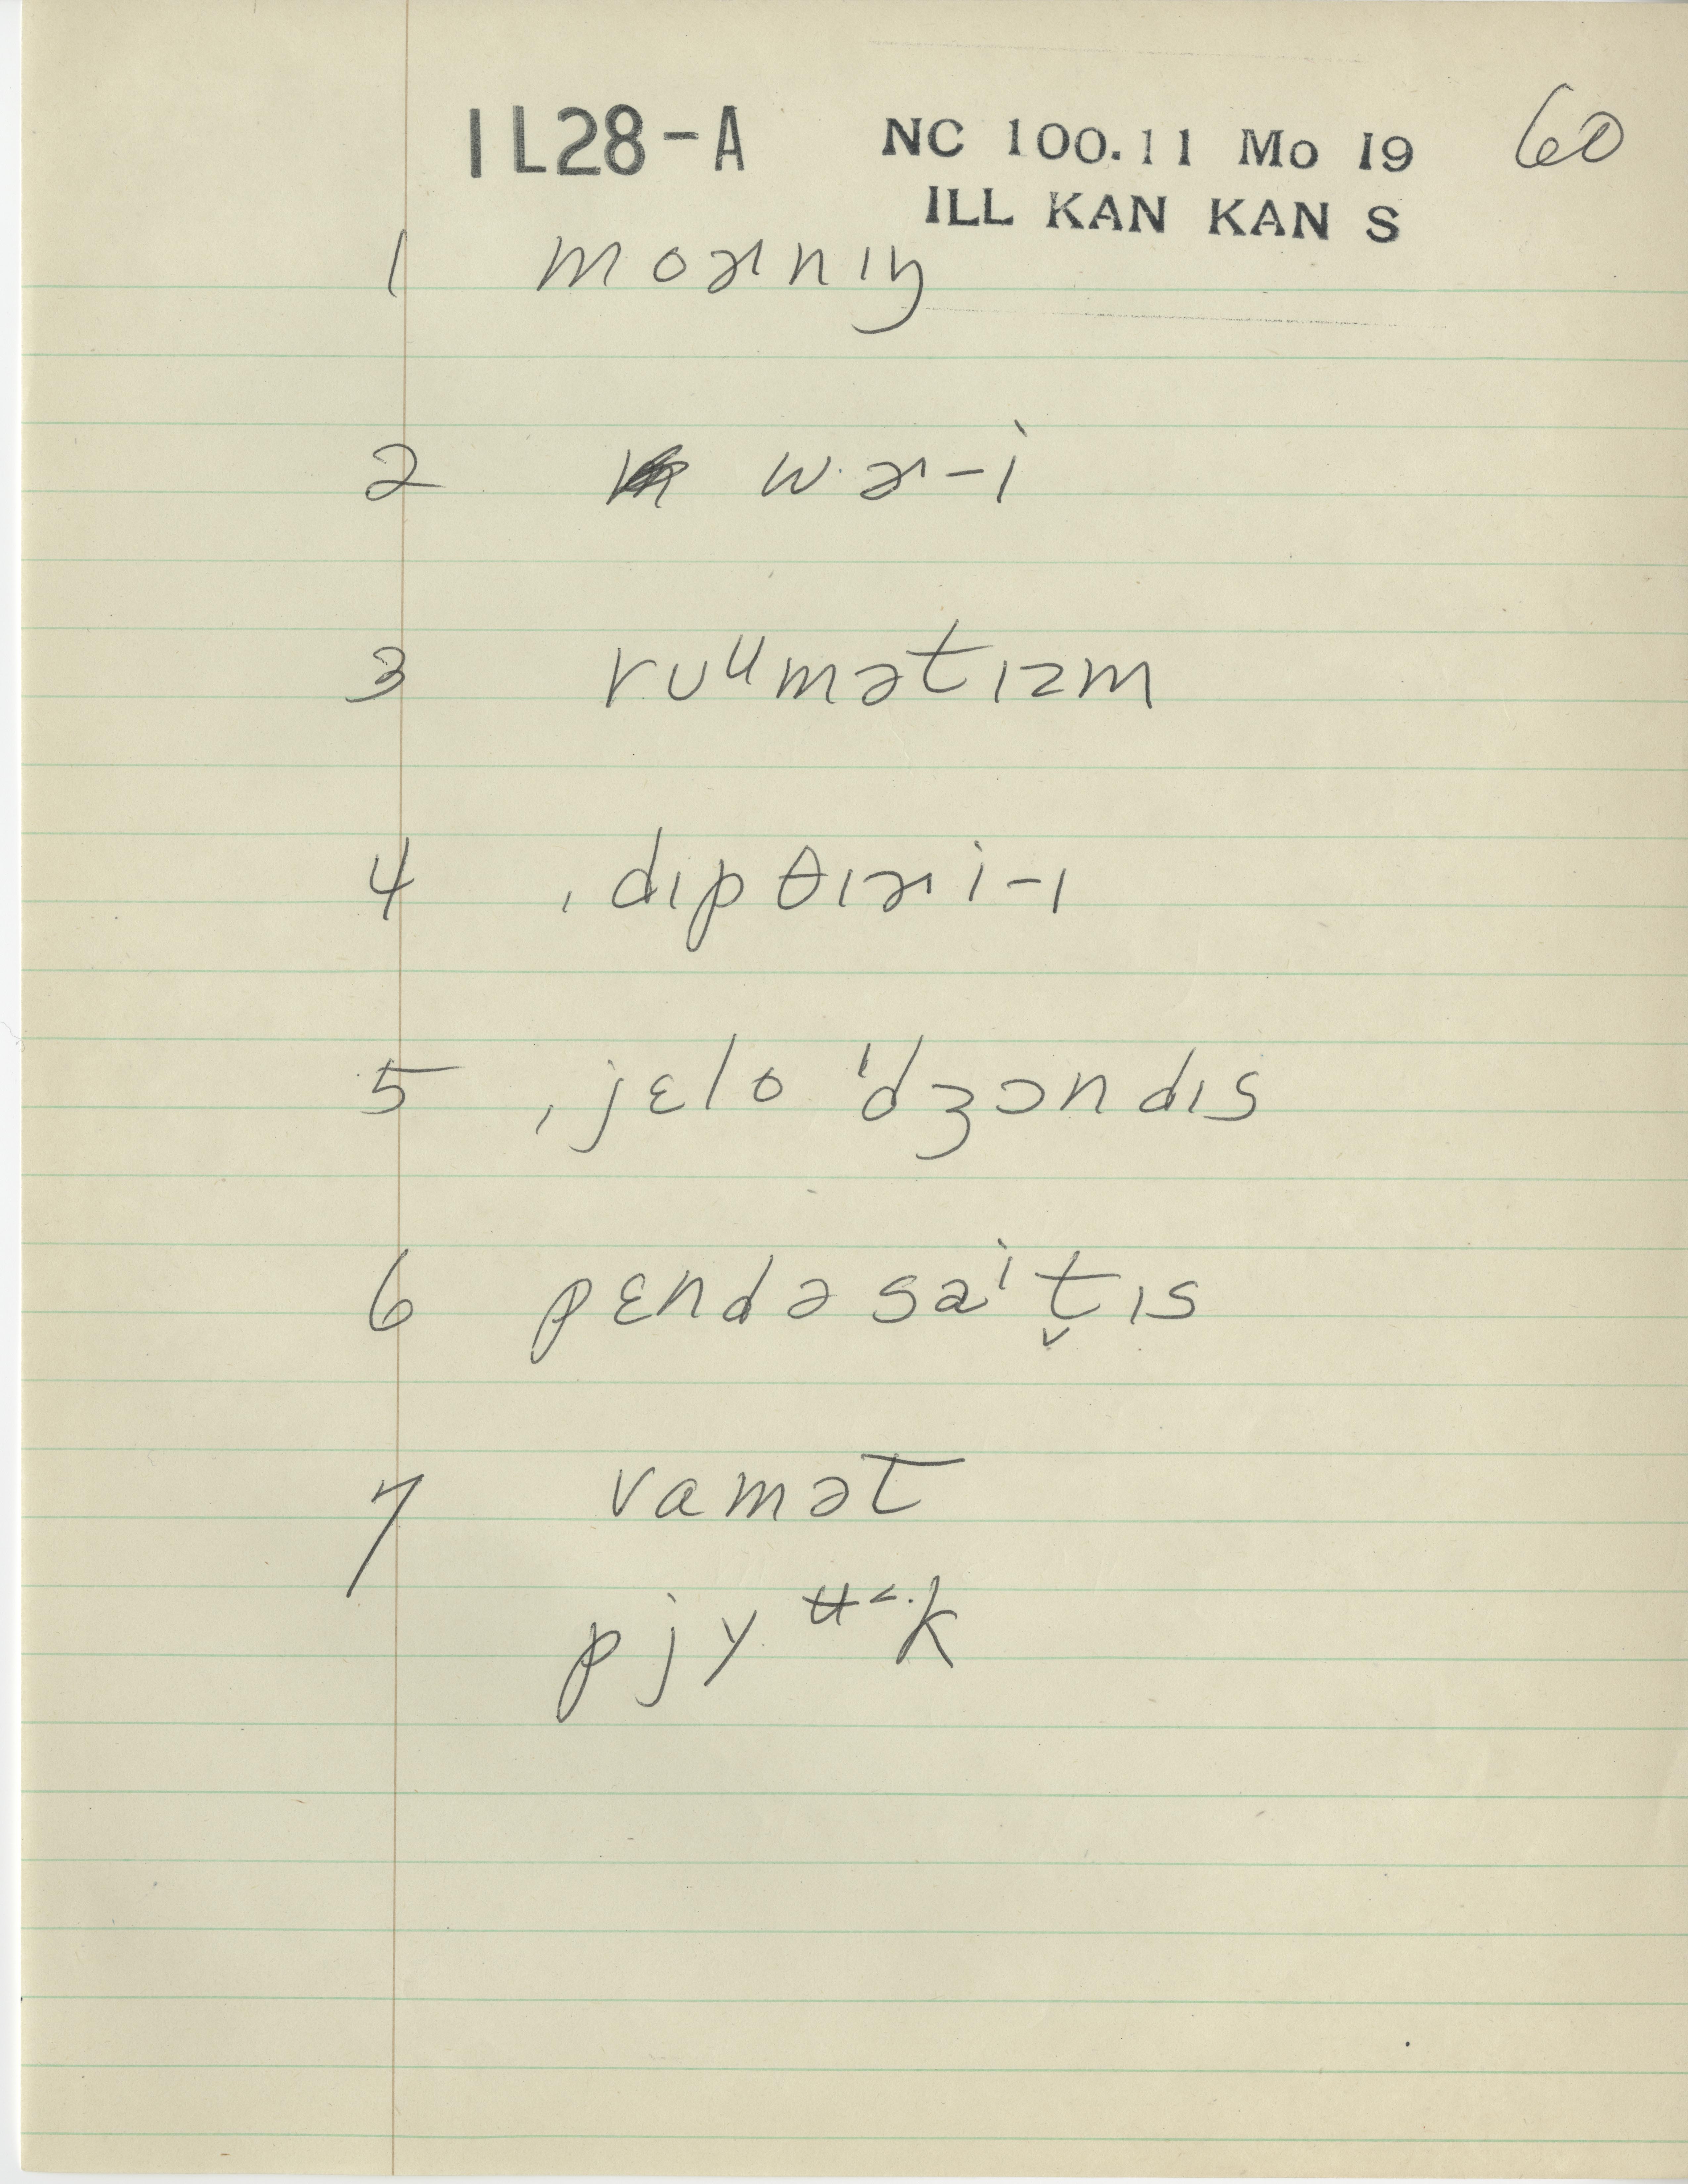 1L28-A NC 100.11 Mo 19 60
ILL KAN KAN S
1 moɚnɪŋ
2 wɚ-i
3 rᴜᵘmətɪzm
4 ˌdɪpθɪɚi-ɪ
5 ˌjɛlo ˈdʒɔndɪs
6 pɛndəsaⁱt̬ɪs
7 vamət
pjyᵻ˂·k